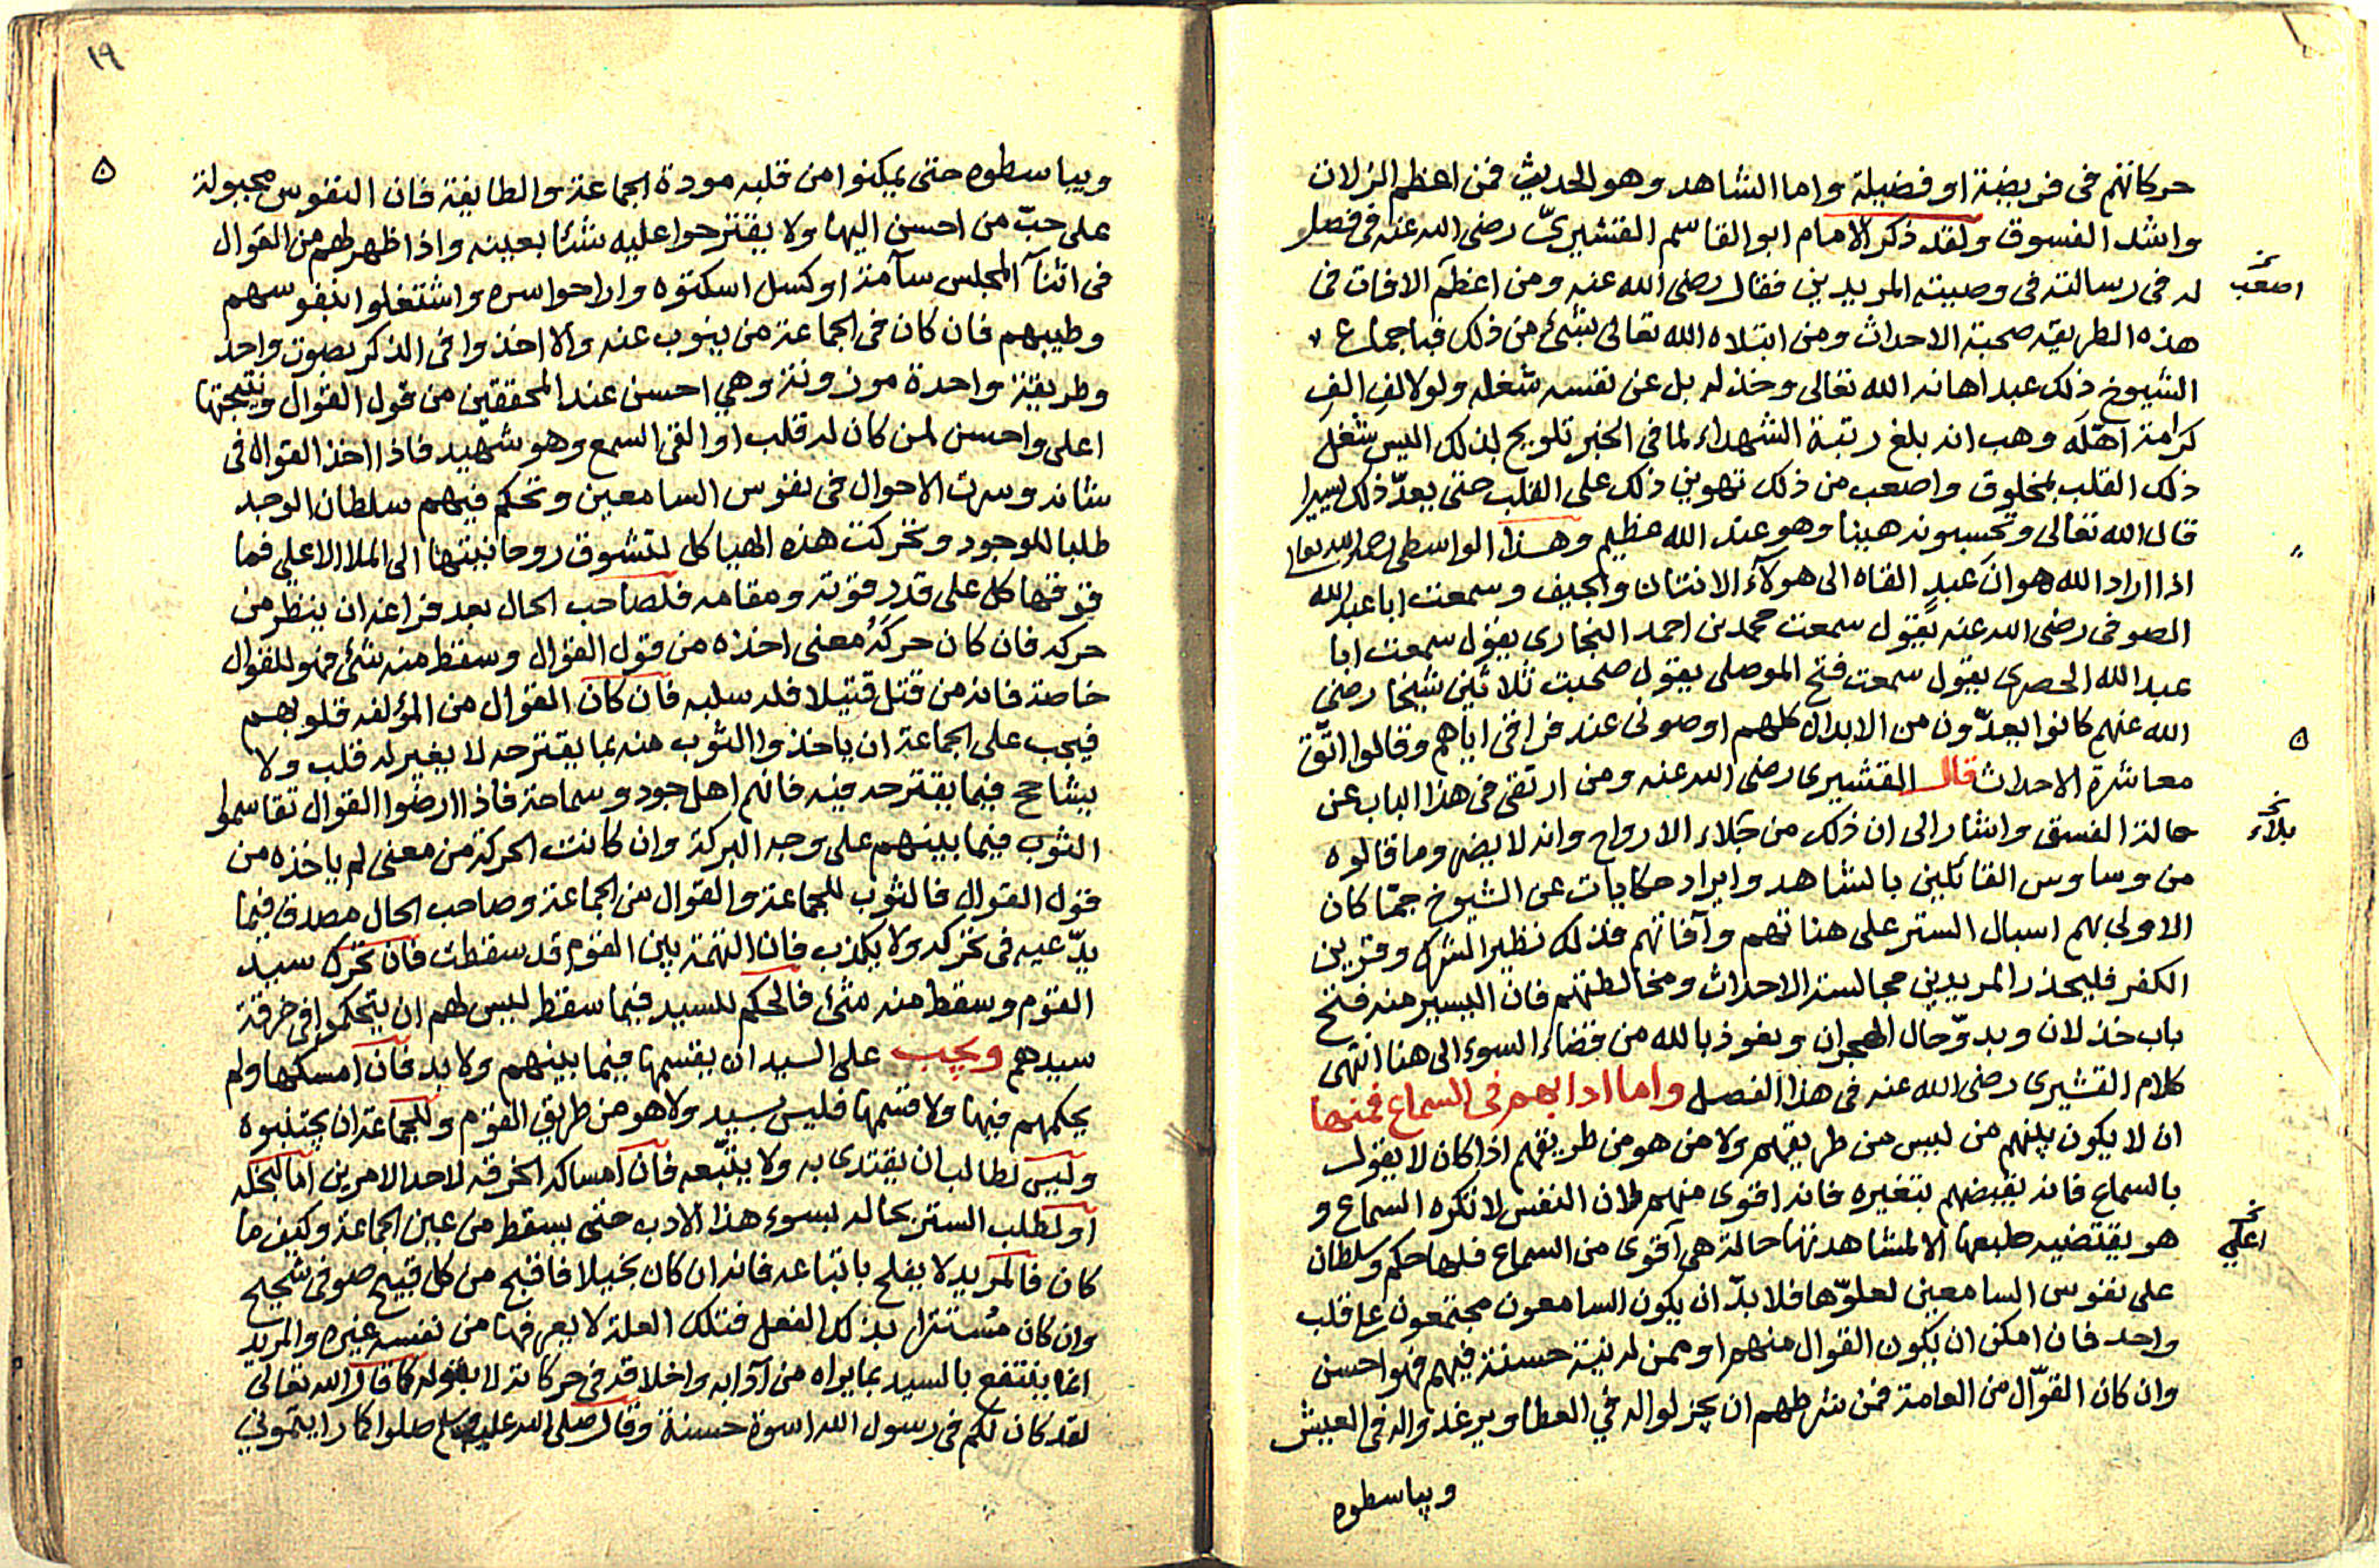 حركاتهم فى فريضة او فضيلة واما الشاهد وهو الحديث فمن اعظم الزلات
واشد الفسوق ولقد ذكر الامام ابو القاسم القشيرىّ رضى الله عنه فى فصل
له فى رسالته فى وصيته المريدين فقال رضى الله عنه ومن اعظم الافات فى
اصعب
هذه الطريقه صحبة الاحداث ومن ابتلاه الله تعالى بشىء من ذلك فباجماع
الشيوخ ذلك عبد اهانه الله تعالى وخذله بل عن نفسه شغله ولو لالف الف
كرامة اهّله وهب انه بلغ رتبة الشهداء لما فى الخبر تلويح بذلك اليس شغل
ذلك القلب بمخلوق واصعب من ذلك تهوين ذلك على القلب حتى يعدّ ذلك يسيرا
قال الله تعالى وتحسبونه هينا وهو عند الله عظيم وهذا الواسطى رحمه الله يقول
اذا اراد الله هوان عبدٍ القاه الى هولآء الانتان والجيف وسمعت ابا عبد الله
الصوفى رضى الله عنه يقول سمعت محمد بن احمد النجارى يقول سمعت ابا
عبد الله الحصرى يقول سمعت فتح الموصلى يقول صحبت ثلاثين شيخا رضى
الله عنهم كانوا يعدّون من الابدال كلهم اوصونى عند فراقى اياهم وقالوا اتّق
٥
معاشرة الاحداث قال القشيرى رضى الله عنه ومن ارتقى فى هذا الباب عن
حالة الفسق واشار الى ان ذلك من جلاء الارواح وانه لا يضر وما قالوه
بلاء
من وساوس القائلين بالشاهد وايراد حكايات عن الشيوخ جمّا كان
الاولى بهم اسبال الستر على هناتهم وآفاتهم فذلك نظير الشرك وقرين
الكفر فليحذر المريدين مجالسة الاحداث ومخالطتهم فان اليسير منه فتح
باب خذلان وبدوّ حال الهجران ونعوذ بالله من قضاء السوء الى هنا انتهى
كلام القشيرى رضى الله عنه فى هذا الفصل واما ادابهم فى السماع فمنها
ان لا يكون بينهم من ليس من طريقهم ولا من هو من طريقهم اذا كان لا يقول
بالسماع فانه يقبضهم بتغيره فانه اقوى منهم لان النفس لا تكره السماع و
هو يقتضيه طبعها الا لمشاهدتها حالة هى آقوى من السماع فلها حكم وسلطان
اعلى
على نفوس السامعين لعلوّها فلا بدّ ان يكون السامعون مجتمعون على قلب
واحد فان امكن ان يكون القوال منهم او ممن له نية حسنة فيهم فهو احسن
وان كان القوّال من العامة فمن شرطهم ان يجزلوا له في العطا ويرغدوا له فى العيش
ويباسطوه
١٩
ويباسطوه حتى يمكنوا من قلبه مودة الجماعة والطايفة فان النفوس مجبولة
٥
على حبّ من احسن اليها ولا يقترحوا عليه شئا بعينه واذا ظهر لهم من القوال
فى اثنآ المجلس سآمة او كسل اسكتوه واراحوا سره واشتغلوا بنفوسهم
وطيبهم فان كان فى الجماعة من ينوب عنه والا اخذوا فى الذكر بصوت واحد
وطريقة واحدة موزونة وهي احسن عند المحققين من قول القوال ونتيجتها
اعلى واحسن لمن كان له قلب او القى السمع وهو شهيد فاذا اخذ القوال فى
شانه وسرت الاحوال فى نفوس السامعين وتحكم فيهم سلطان الوجد
طلبا للوجود وتحركت هذه الهياكل لتشوق روحانيتها الى الملا الاعلى فما
فوقها كل على قدر قوته ومقامه فلصاحب الحال بعد فراغه ان ينظر من
حركه فان كان حركه معنى اخذه من قول القوال وسقط منه شئ فهو للقوال
خاصة فانه من قتل قتيلا فله سلبه فان كان القوال من المؤلفه قلوبهم
فيجب على الجماعة ان ياخذوا الثوب منه بما يقترحه لا يغير له قلب ولا
يشاحح فيما يقترحه فيه فانهم اهل جود وسماحة فاذا ارضوا القوال تقاسموا
الثوب فيما بينهم على وجه البركة وان كانت الحركة من معنى لم ياخذه من
قول القوال فالثوب للجماعة والقوال من الجماعة وصاحب الحال مصدق فيما
يدّعيه فى تحركه ولا يكذب فان التهمة بين القوم قد سقطت فان تحرك سيد
القوم وسقط منه شئ فالحكم للسيد فيما سقط ليس لهم ان يتحكموا فى خرقة
سيدهم ويجب على السيد ان يقسمها فيما بينهم ولا بد فان امسكها ولم
يحكمهم فيها ولا قسمها فليس بسيد ولا هو من طريق القوم وللجماعة ان يجتنبوه
وليس لطالب ان يقتدى به ولا يتبّعه فان امساكه الخرقه لاحد الامرين اما لبخله
او لطلب الستر بحاله بسوء هذا الادب حتى يسقط من عين الجماعة وكيف ما
كان فالمريد لا يفلح باتباعه فانه ان كان بخيلا فاقبح من كل قبيح صوفى شحيح
وان كان مستترا بذلك الفعل فتلك العلة لا يعرفها من نفسه غيره والمريد
انما ينتفع بالسيد بما يراه من آدابه واخلاقه فى حركاته لا بقوله كما قال الله تعالى
لقد كان لكم فى رسول الله اسوة حسنة وقال صلى الله عليه وسلم صلوا كما رايتمونى